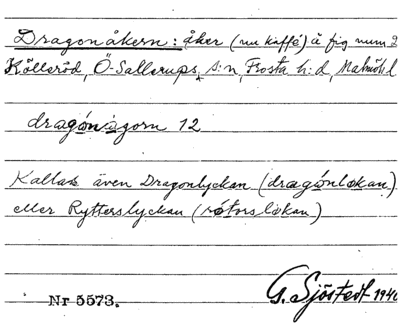 Dragonåkern: åker (nu kaffé) å fig num 2
Kölleröd, Ö-Sallerups s:n, Frosta h:d, Malmöh.l
dragónågorn 12
Kallas även Dragonlyckan (dragónlokan)
eller Rytterslyckan (rotorslokan)
Nr 5573.
G. Sjöstedt 1940